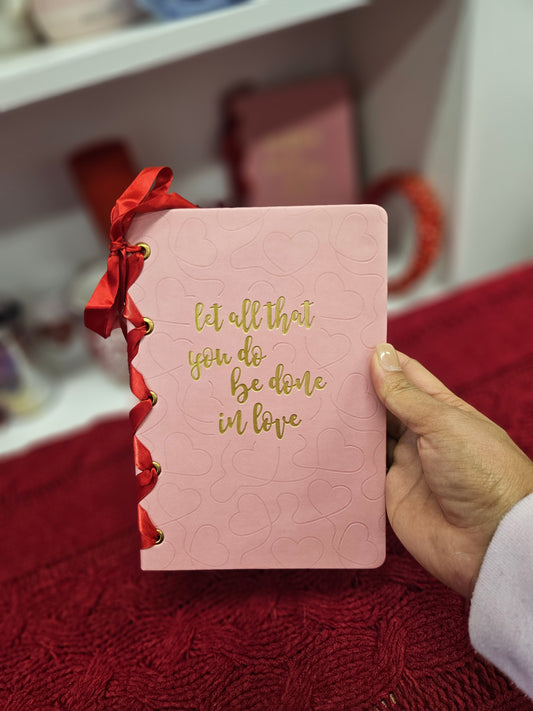 let all that
you do
be done
in love